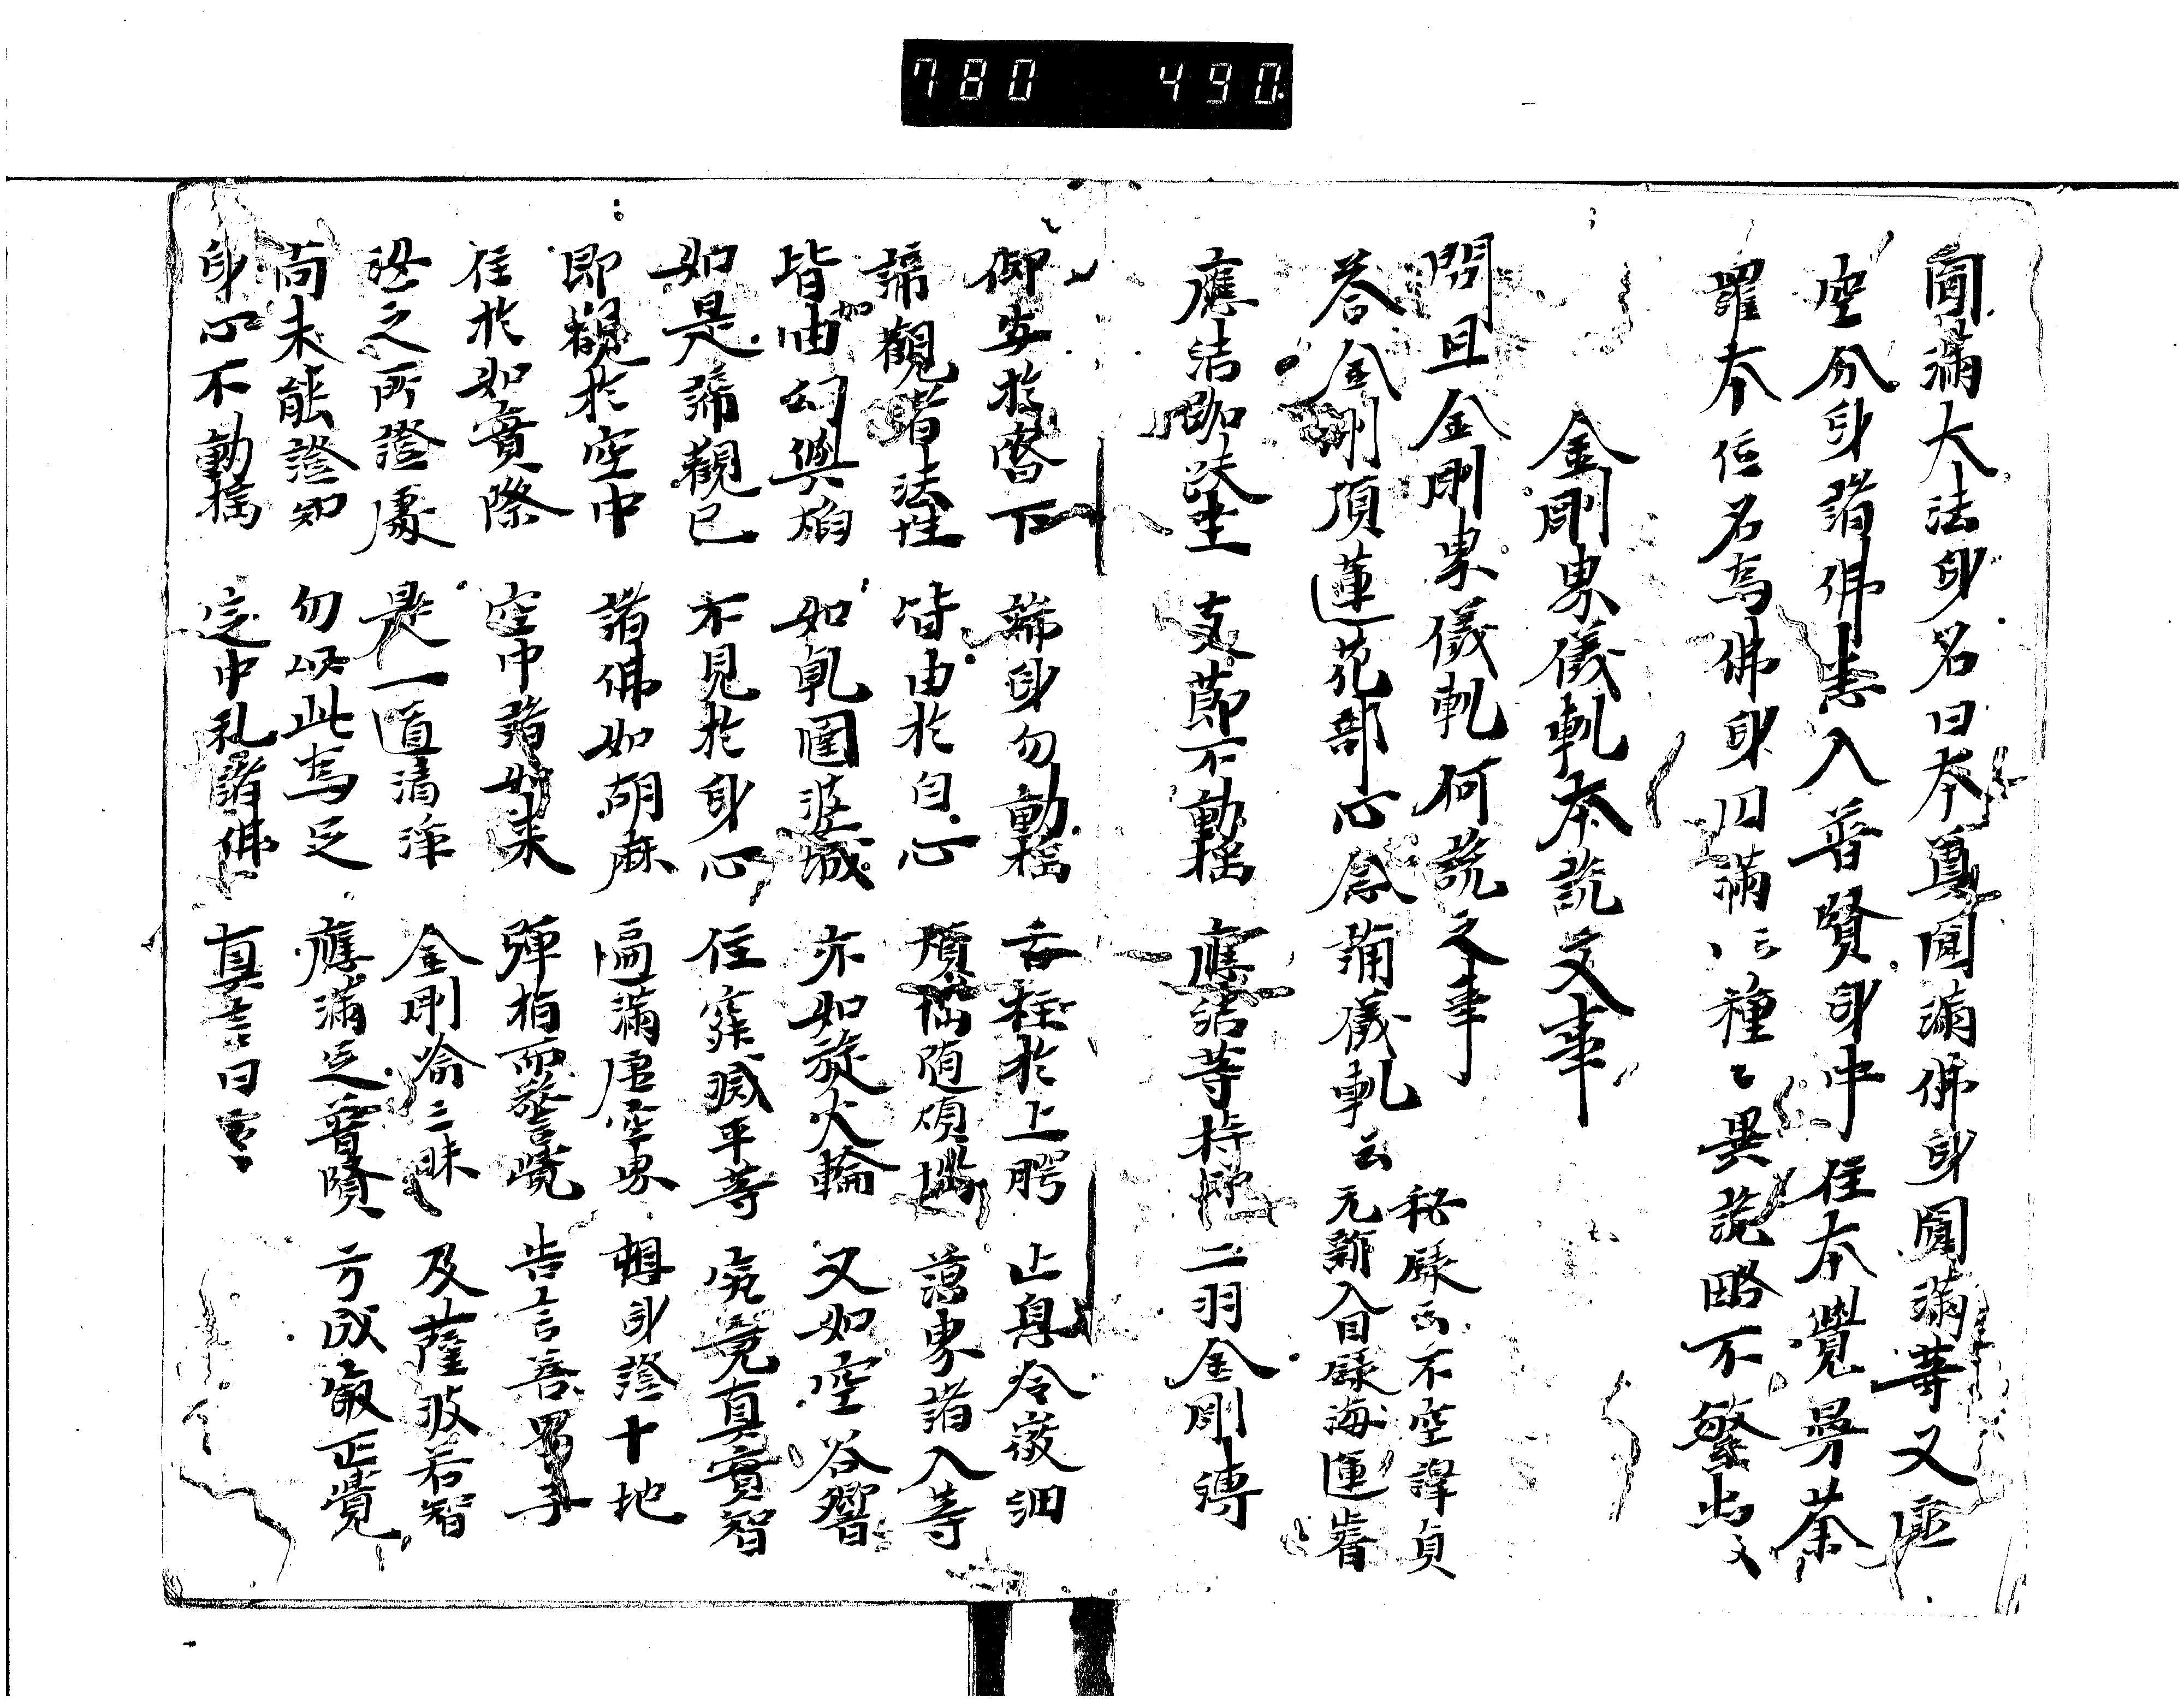 780 490
圓滿大法身名曰本尊圓滿佛身圓滿等又虛
空分身諸佛悉入普賢身中住本覺曼荼
羅本位名為佛身円滿云云種々異說略不繁出文
金剛界儀軌本說文事
問且金剛界儀軌何說之事
答金剛頂蓮花部心念誦儀軌云 秘錄云不空譯貞
元新入目錄海運睿
應結跏趺坐 支節不動搖 應結等持印 二羽金剛縛
仰安於齊下 端身勿動搖 舌柱於上腭 止息令微細
諦觀諸法性 皆由於自心 煩惱隨煩惱 蘊界諸入等
皆由如幻與焰 如乾闥婆城 亦如旋火輪 又如空谷響
如是諦觀已 不見於身心 住寂滅平等 究竟真實智
即觀於空中 諸佛如胡麻 遍滿虛空界 想身證十地
住於如實際 空中諸如來 彈指而警覺 告言善男子
汝之所證處 是一道清淨 金剛喻三昧 及薩婆若智
尚未能證知 勿以此為足 應滿足普賢 方成最正覺
身心不動搖 定中礼諸佛 真言曰